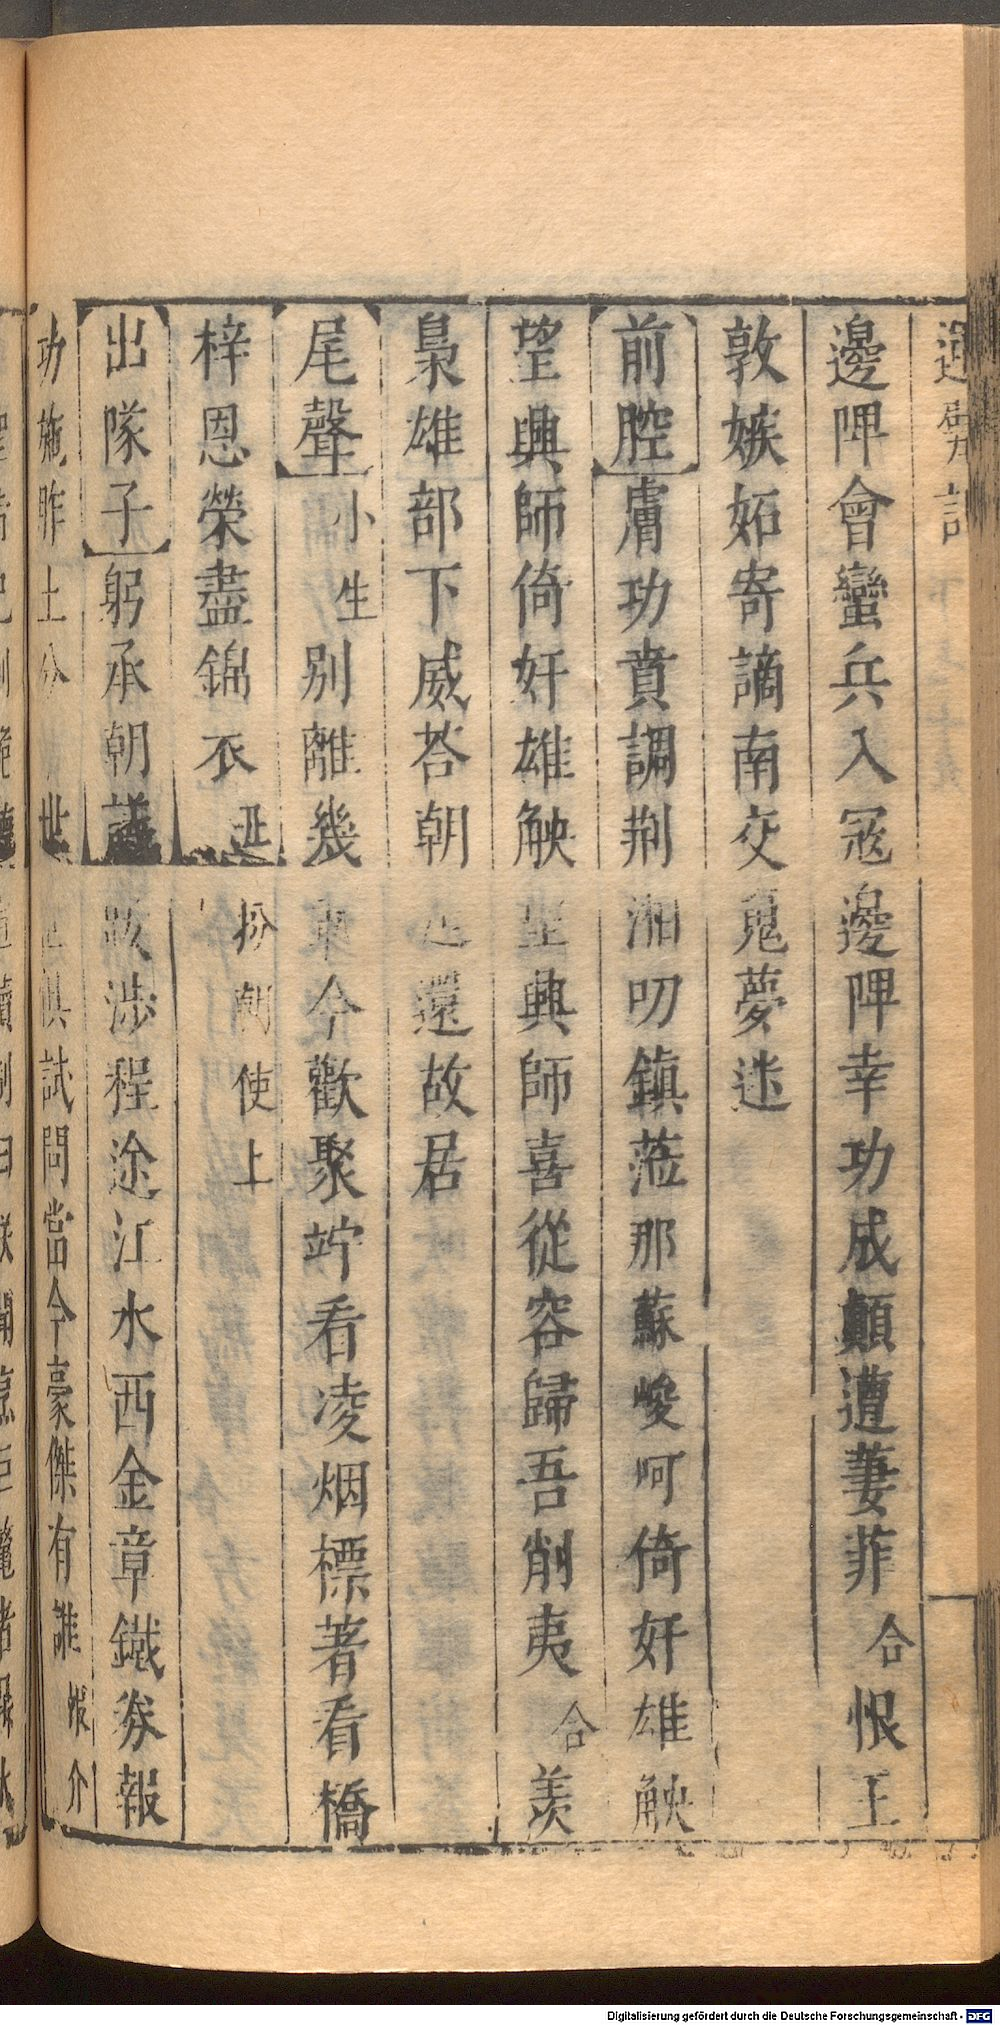 邊陴會蠻兵入冦邊陴幸功成顛遭萋菲合恨王
敦嫉妬寄謫南交鬼夢迷
前腔膚功賁調荆湘叨鎮蒞那蘇峻呵倚奸雄觖
望興師倚奸雄觖望興師喜從容歸吾削夷合羡
梟雄部下威荅朝廷還故居
尾聲小生别離幾東今歡聚竚看凌烟標著看橋
梓恩榮盡錦衣丑扮朝使上
出隊子躬承朝議跋涉程途江水西金章鐵券報
功施昨土分世俱試問當今豪傑有誰介
Digitalisierung gefördert durch die Deutsche Forschungsgemeinschaft - DFG